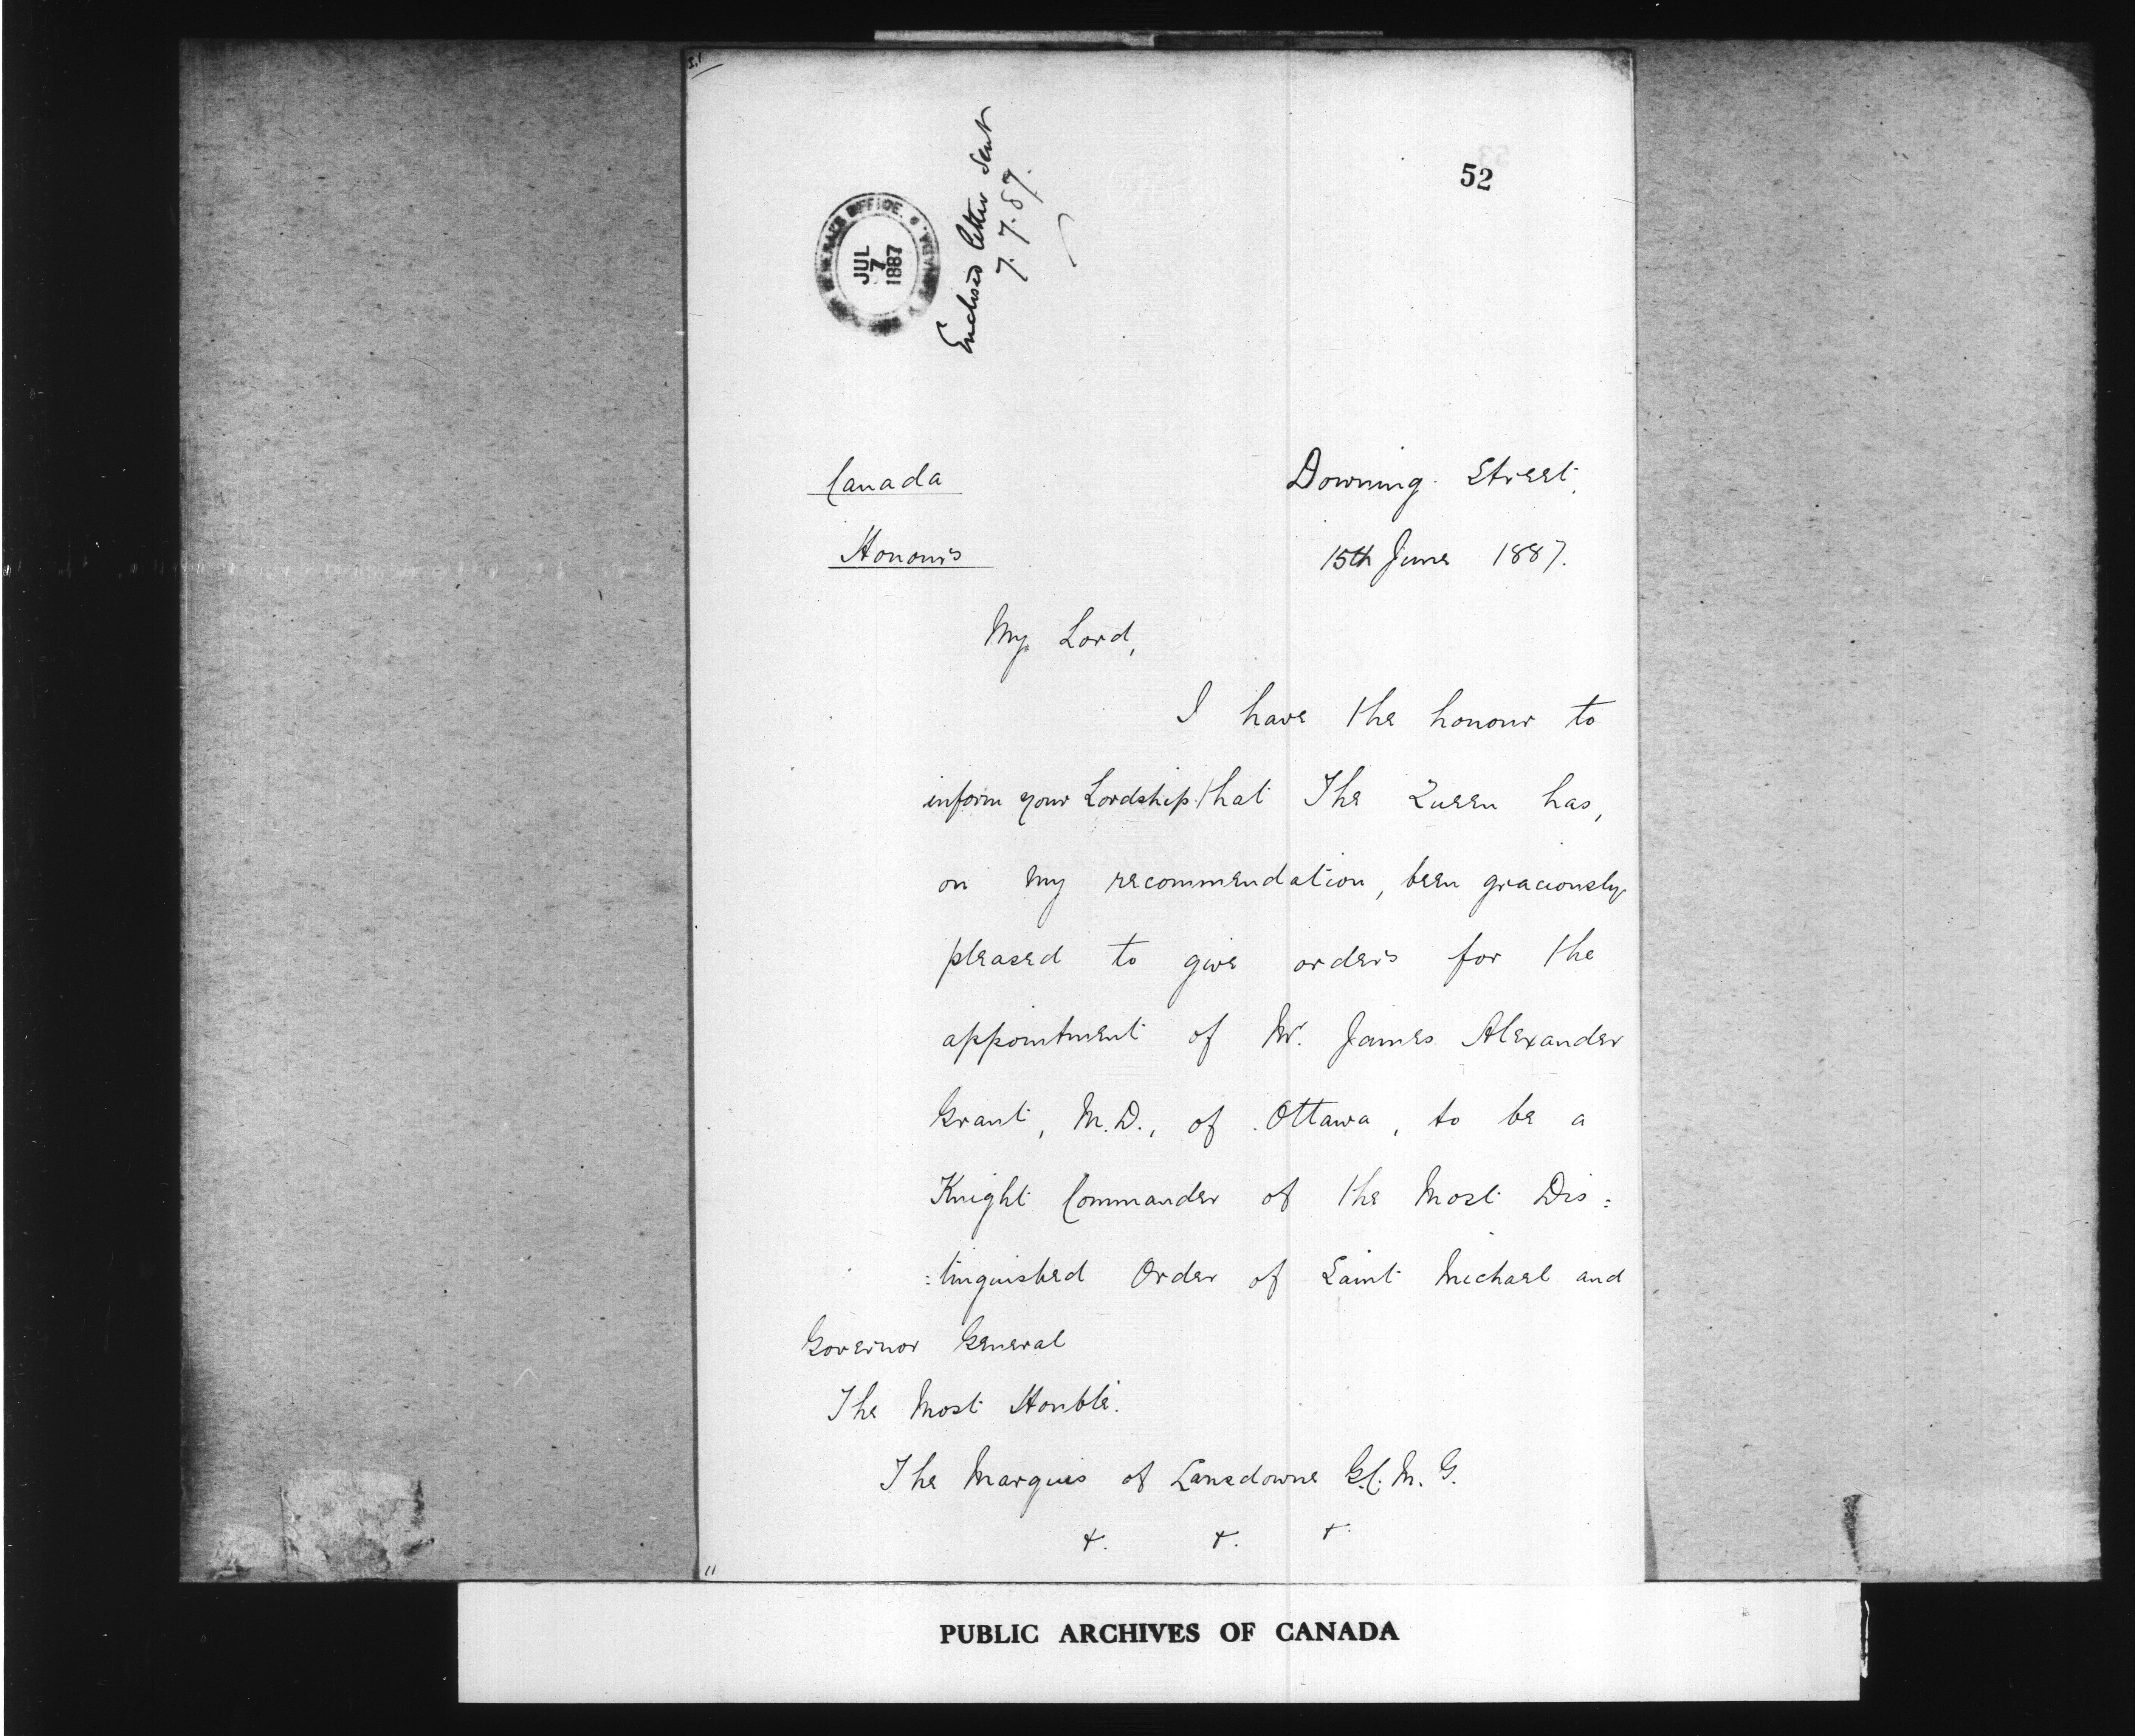 52
JUL
7
1887
Enclosed letter sent
7.7.87.
Canada
Downing Street,
Honours
15th June 1887.
My Lord,
I have the honour to
inform your Lordship that The Queen has,
on my recommendation, been graciously
pleased to give orders for the
appointment of Mr. James Alexander
Grant, M.D., of Ottawa, to be a
Knight Commander of the Most Dis=
=tinguished Order of Saint Michael and
Governor General
The Most Honble.
The Marquis of Lansdowne G.C.M.G.
&. &. &.
PUBLIC ARCHIVES OF CANADA